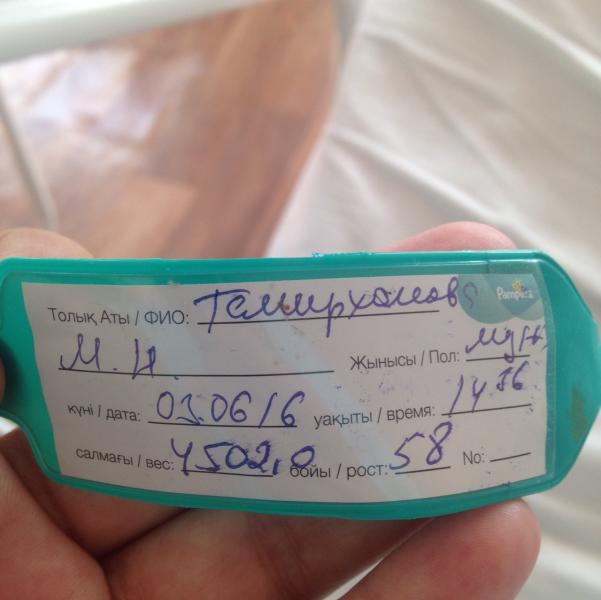 Pampers
Толық Аты / ФИО: Темирханова
М. Н. Жынысы / Пол: муж
күні / дата: 03.06 16 уақыты / время: 14 36
салмағы / вес: 4502,0 бойы / рост: 58 No: